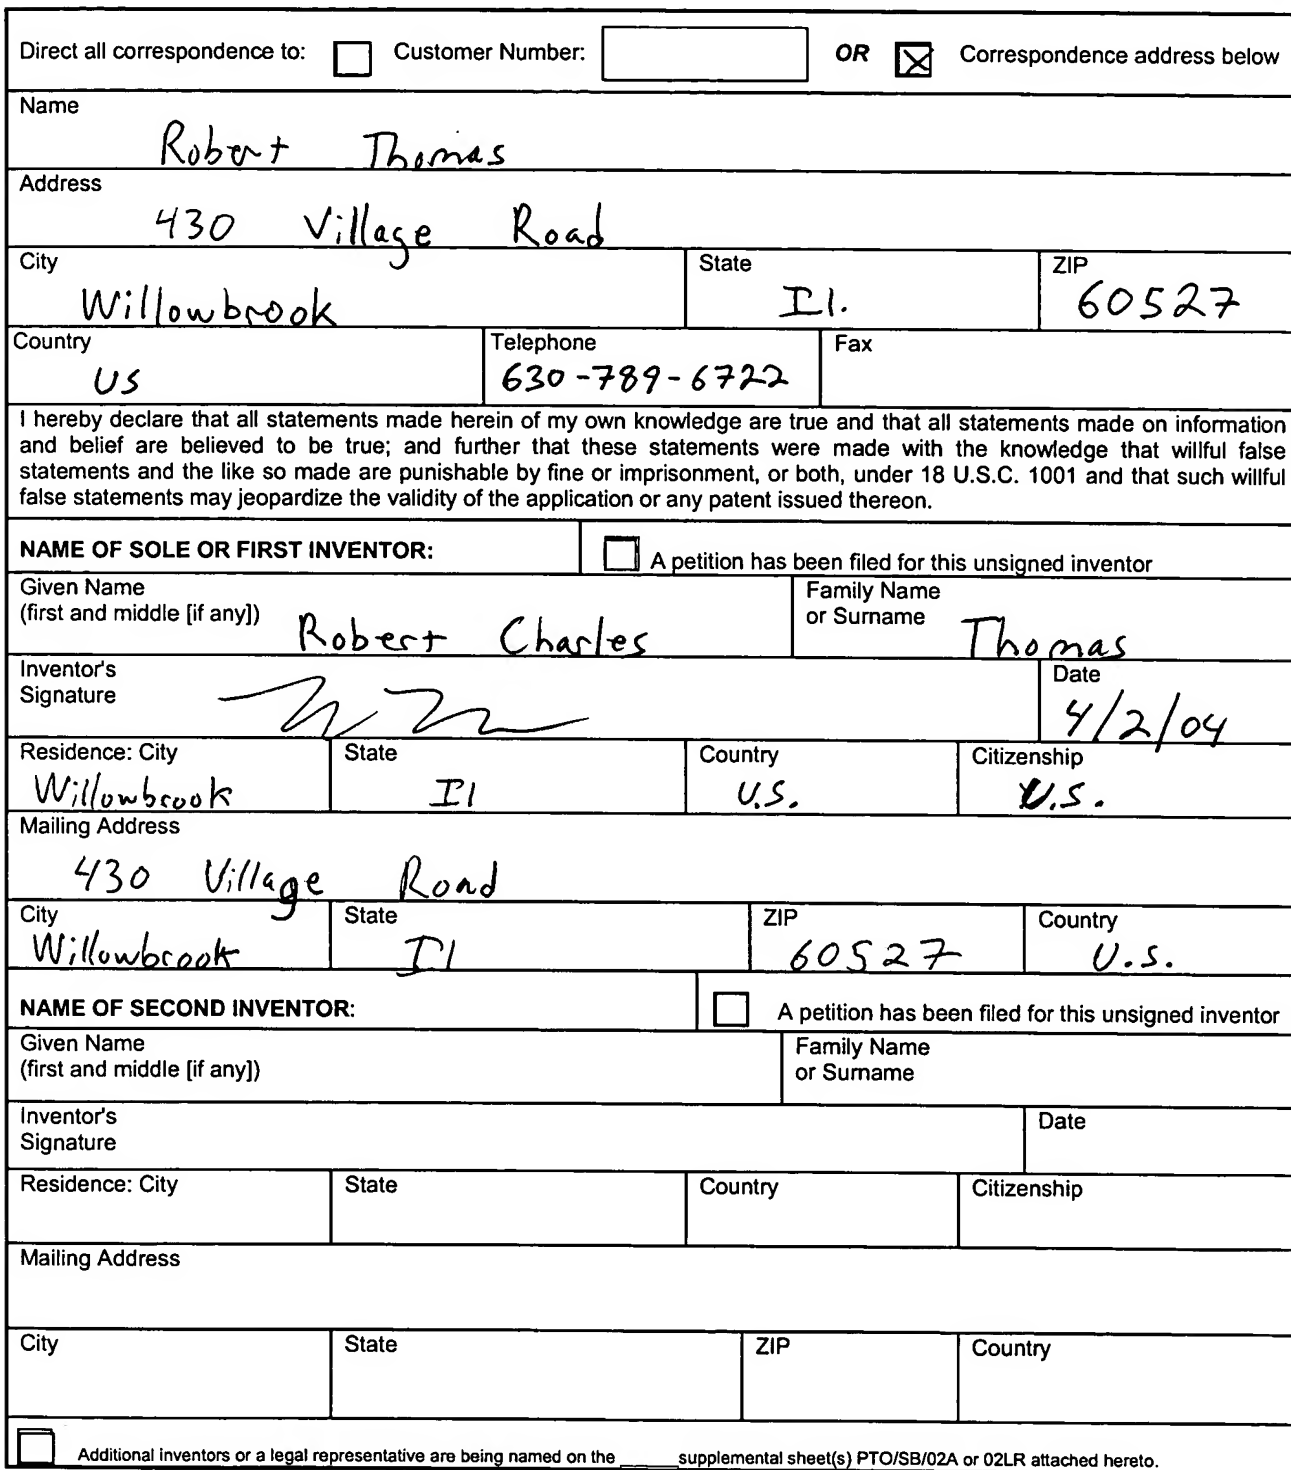 Direct all correspondence to: Customer Number: OR Correspondence address below
Name
Robert Thomas
Address
430 Village Road
City State ZIP
Willowbrook Il. 60527
Country Telephone Fax
US 630-789-6722
I hereby declare that all statements made herein of my own knowledge are true and that all statements made on information
and belief are believed to be true; and further that these statements were made with the knowledge that willful false
statements and the like so made are punishable by fine or imprisonment, or both, under 18 U.S.C. 1001 and that such willful
false statements may jeopardize the validity of the application or any patent issued thereon.
NAME OF SOLE OR FIRST INVENTOR: A petition has been filed for this unsigned inventor
Given Name Family Name
(first and middle [if any]) or Surname
Robert Charles Thomas
Inventor's Date
Signature
4/2/04
Residence: City State Country Citizenship
Willowbrook Il U.S. U.S.
Mailing Address
430 Village Road
City State ZIP Country
Willowbrook Il 60527 U.S.
NAME OF SECOND INVENTOR: A petition has been filed for this unsigned inventor
Given Name Family Name
(first and middle [if any]) or Surname
Inventor's Date
Signature
Residence: City State Country Citizenship
Mailing Address
City State ZIP Country
Additional inventors or a legal representative are being named on the _____ supplemental sheet(s) PTO/SB/02A or 02LR attached hereto.